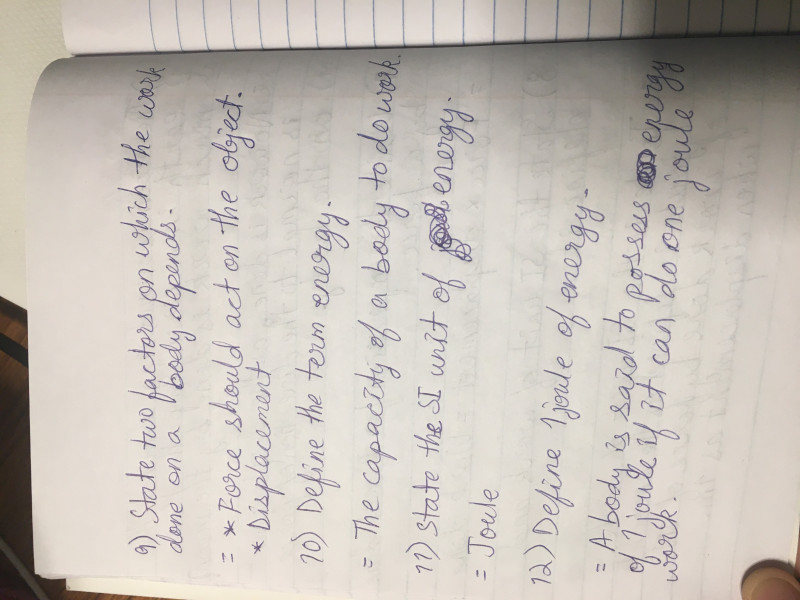 9) State two factors on which the work
done on a body depends.
= * Force should act on the object.
* Displacement
10) Define the term energy.
= The capacity of a body to do work.
11) State the SI unit of energy.
= Joule
12) Define 1 joule of energy.
= A body is said to posses energy
of 1 joule if it can do one joule
work.